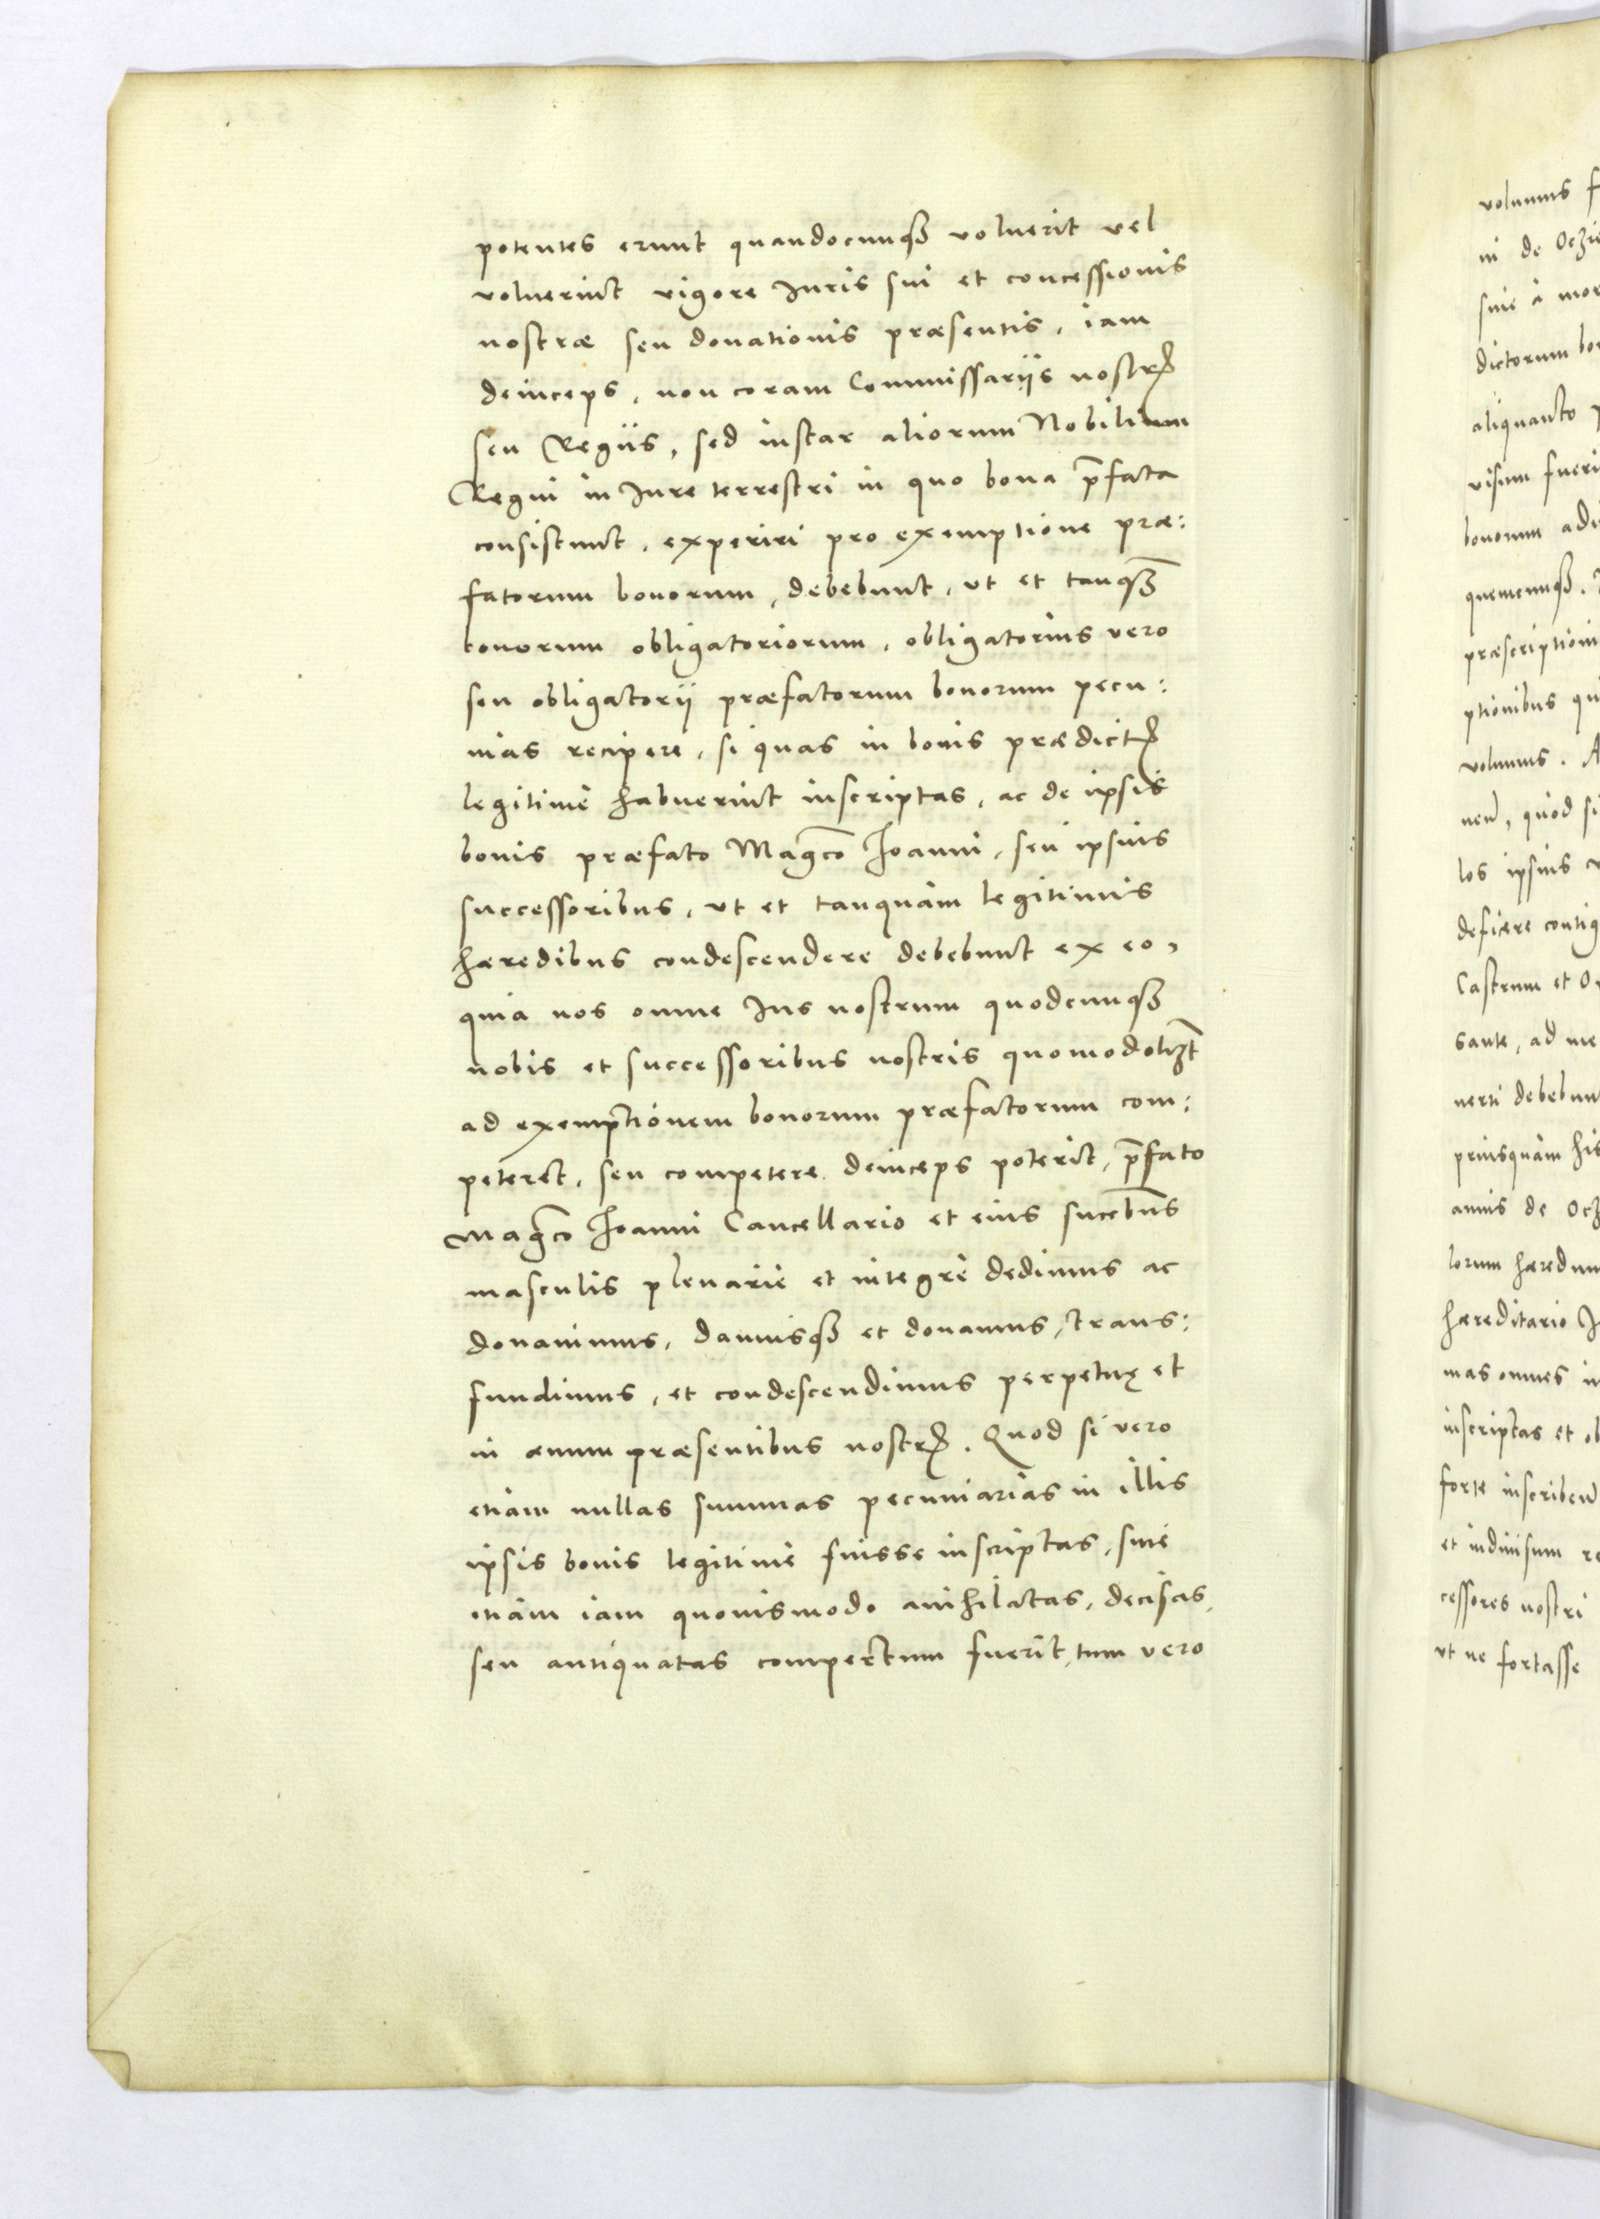 potentes erunt quandocunq3 voluerit vel
voluerint vigore Iuris sui et concessionis
nostræ seu donationis præsentis, iam
deinceps, non coram Commissariis nostr̃
seu Regiis, sed instar aliorum Nobilium
Regni in Iure terrestri in quo bona p̄fata
consistunt, experiri pro exemptione præ:
fatorum bonorum, debebunt, ut et tanq̄3
bonorum obligatoriorum, obligatorius vero
seu obligatorii præfatorum bonorum pecu:
nias recipere, si quas in bonis prædict̃
legitimè habuerint inscriptas, ac de ipsis
bonis præfato Magc̄o Ioanni, seu ipsius
successoribus, ut et tanquàm legitimis
hæredibus condescendere debebunt ex eo,
quia nos omne Ius nostrum quodcunq3
nobis et successoribus nostris quomodolizt̄
ad exemptionem bonorum præfatorum com:
peteret, seu competere deinceps poterit, p̄fato
Magc̄o Ioanni Cancellario et eius sucēbus
masculis plenariè et integrè dedimus ac
donavimus, damusq3 et donamus, trans:
fundimus, et condescendimus perpetuę et
in æuum præsentibus nostr̃. Quod si vero
etiam nullas summas pecuniarias in illis
ipsis bonis legitimè fuisse inscriptas, siue
etiàm iam quouismodo anihilatas, decisas,
seu antiquatas compertum fuerit, tum vero

volumus
in de
siue à
dictorum
aliquanto
visum
bonorum
quemcunq3.
præscription
ptionibus
volumus.
quòd si
los ipsius
deficere
Castrum et
sante, ad
uerti
priusquàm
annis de
lorum
hæreditario
mas omnes
inscriptas et
forte
et indiuisum
cessores nostri
ut ne fortasse